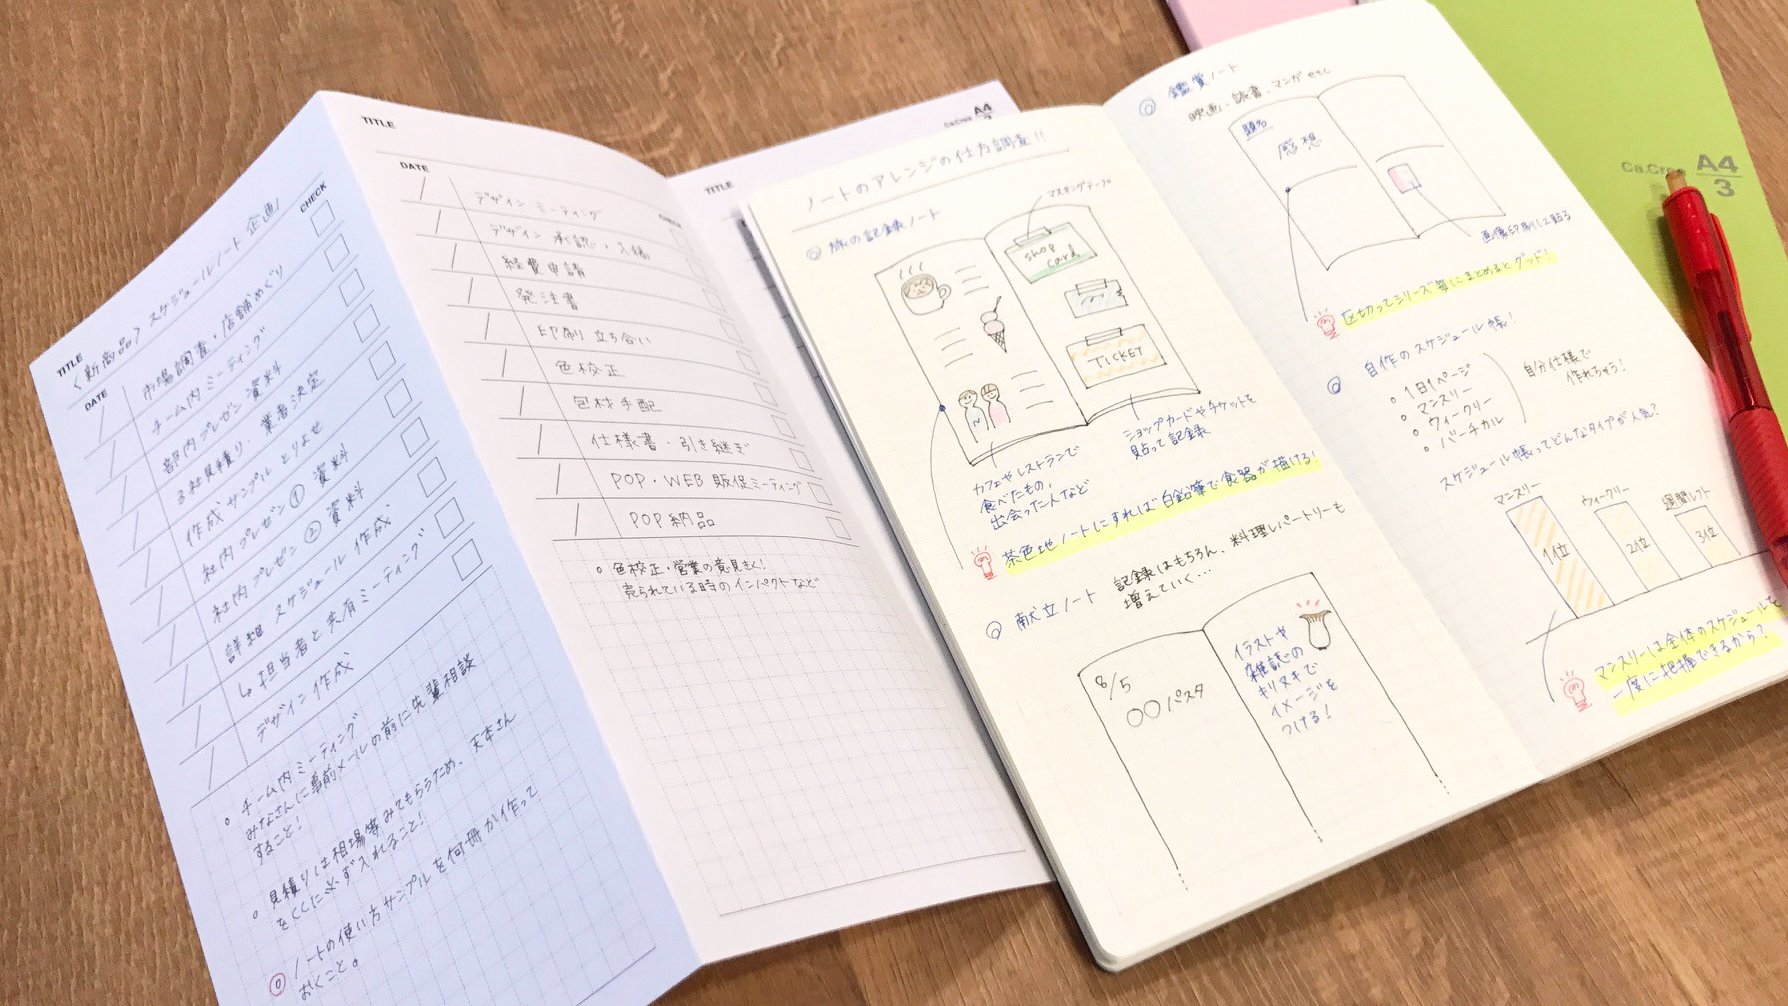 TITLE
<新商品> スケジュールノート 企画
DATE
CHECK
市場調査・店舗めぐり
チーム内 ミーティング
部内 プレゼン 資料
各社見積り・業者決定
作成 サンプル とりよせ
社内 プレゼン ① 資料
社内 プレゼン ② 資料
詳細 スケジュール 作成
↳ 担当者と共有ミーティング
デザイン 作成
○ チーム内 ミーティング
みなさんに事前メールの前に先輩相談
すること!
○ 見積りは相場等みてもらうため、天本さん
をCCに必ず入れること!
◎ ノートの使い方サンプルを何冊か作って
おくこと。
TITLE
DATE
CHECK
デザイン ミーティング
デザイン 承認・入稿
経費申請
発注書
印刷 立ち合い
色校正
包材手配
仕様書・引き継ぎ
POP・WEB 販促ミーティング
POP 納品
○ 色校正・営業の意見きく!
売られている時のインパクトなど
TITLE
Ca.Crea A4
3
ノートのアレンジの仕方調査!!
◎ 旅の記録ノート
マスキングテープ
shop
card
TICKET
カフェやレストランで
食べたもの,
出会った人など
ショップカードやチケットを
貼って記録
茶色地ノートにすれば白鉛筆で食器が描ける!
◎ 献立ノート
記録はもちろん、料理レパートリーも
増えていく…
8/5
○○パスタ
イラストや
雑誌の
キリヌキで
イメージを
つける!
◎ 鑑賞ノート
映画・読書・マンガ etc
題名
感想
画像印刷して貼る
区切ってシリーズ毎にまとめるとグッド!
◎ 自作のスケジュール帳!
• 1日1ページ
• マンスリー
• ウィークリー
• バーチカル
自分仕様で
作れちゃう!
スケジュール帳ってどんなタイプが人気?
マンスリー
ウィークリー
週間レフト
1位
2位
3位
マンスリーは全体のスケジュールを
一度に把握できるから?
Ca.Crea A4
3